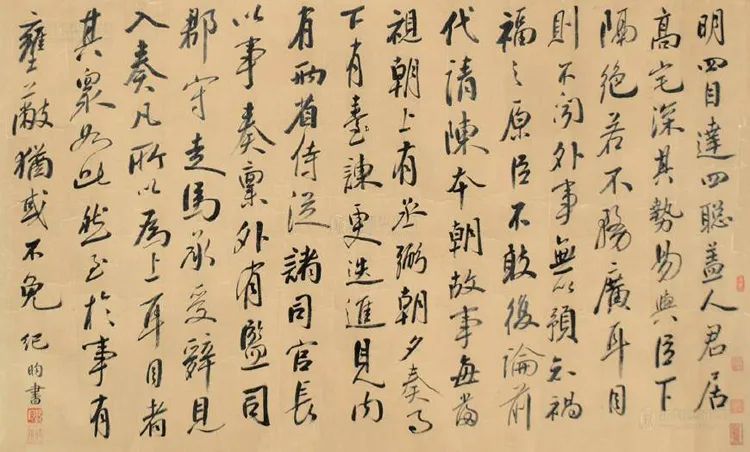 明四目達四聰蓋人君居
高宅深其勢易與臣下
隔絕若不務廣耳目
則不聞外事無以預知禍
福之原臣不敢復論前
代請陳本朝故事每當
視朝上有丞弼朝夕奏事
下有臺諫更迭進見內
有兩省侍從諸司官長
以事奏稟外有監司
郡守走馬承受辭見
入奏凡所以為上耳目者
其衆如此然至於事有
壅蔽猶或不免 紀昀書